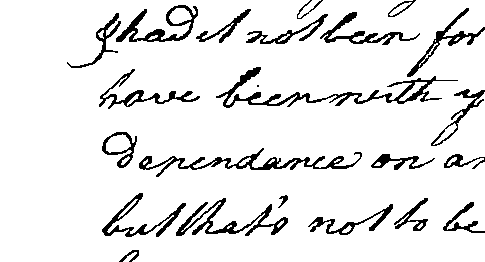 had it not been for
have been with y
Dependance on an
but that's not to be